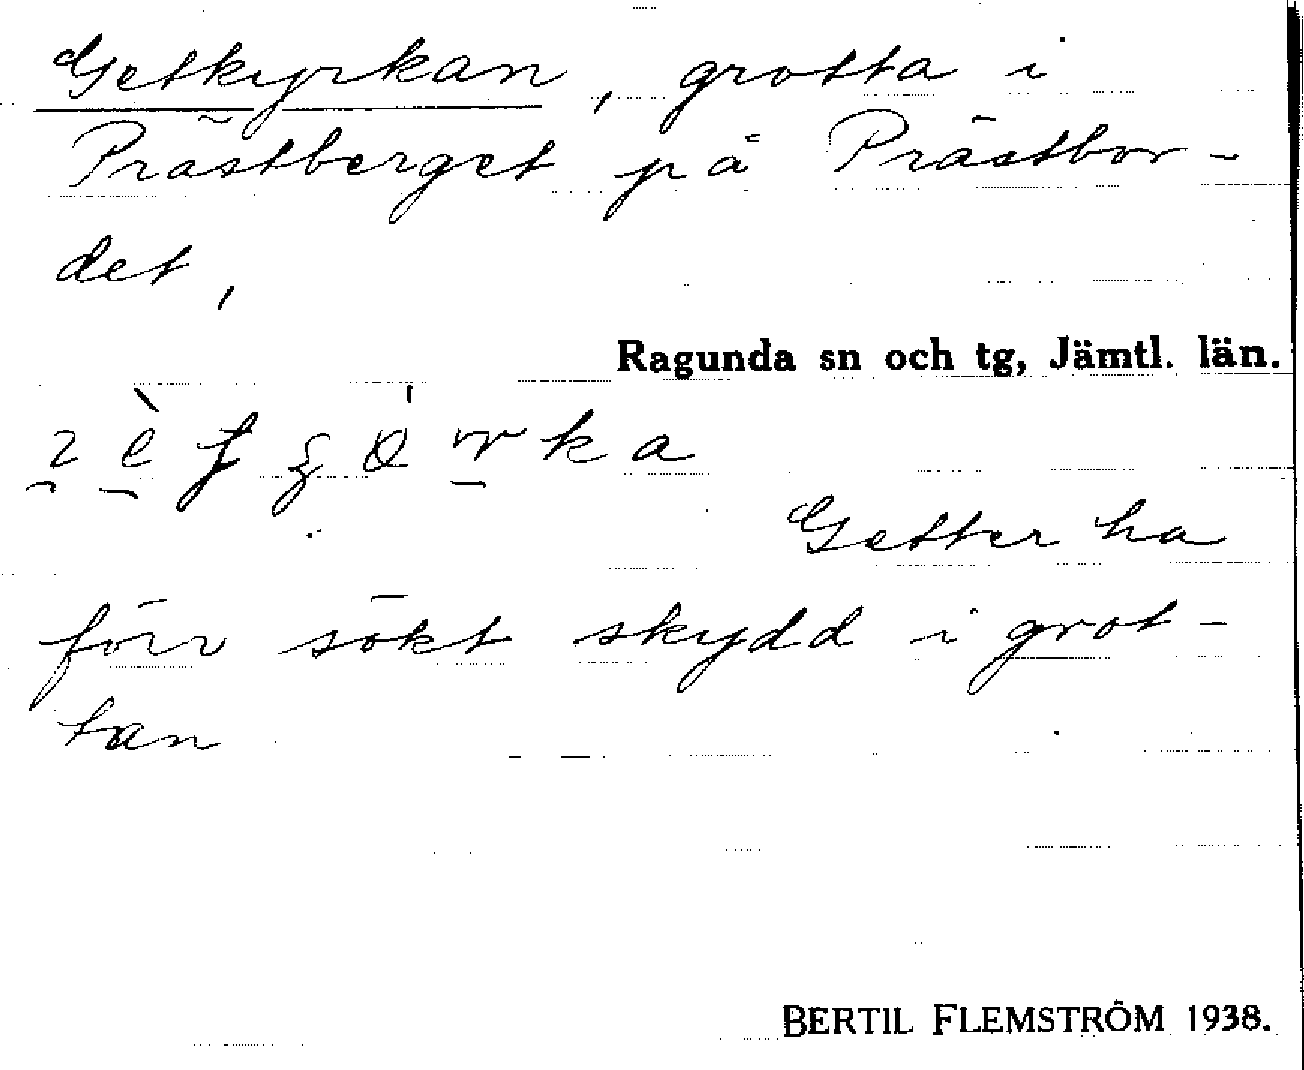 Getkyrkan, grotta i
Prästberget på Prästbor-
det,
Ragunda sn och tg, Jämtl. län.
Getter ha
förr sökt skydd i grot-
tan
BERTIL FLEMSTRÖM 1938.